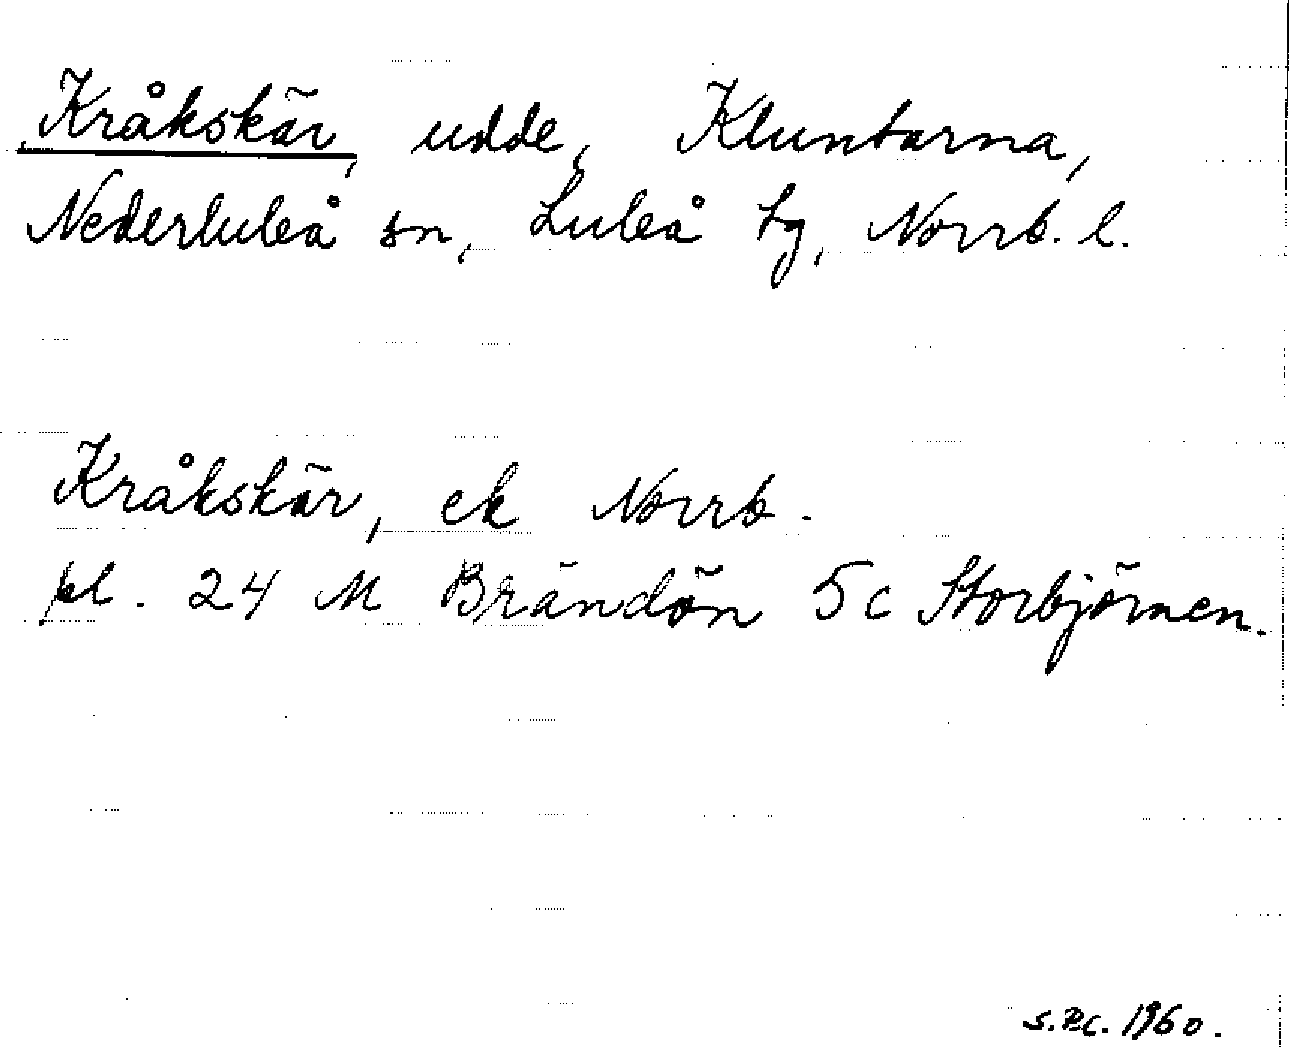 Kråkskär, udde, Kluntarna,
Nederluleå sn, Luleå tg, Norrb. l.
Kråkskär, ek Norrb.
bl. 24 M Brändön 5c Storbjörnen.
S.P.C. 1960.